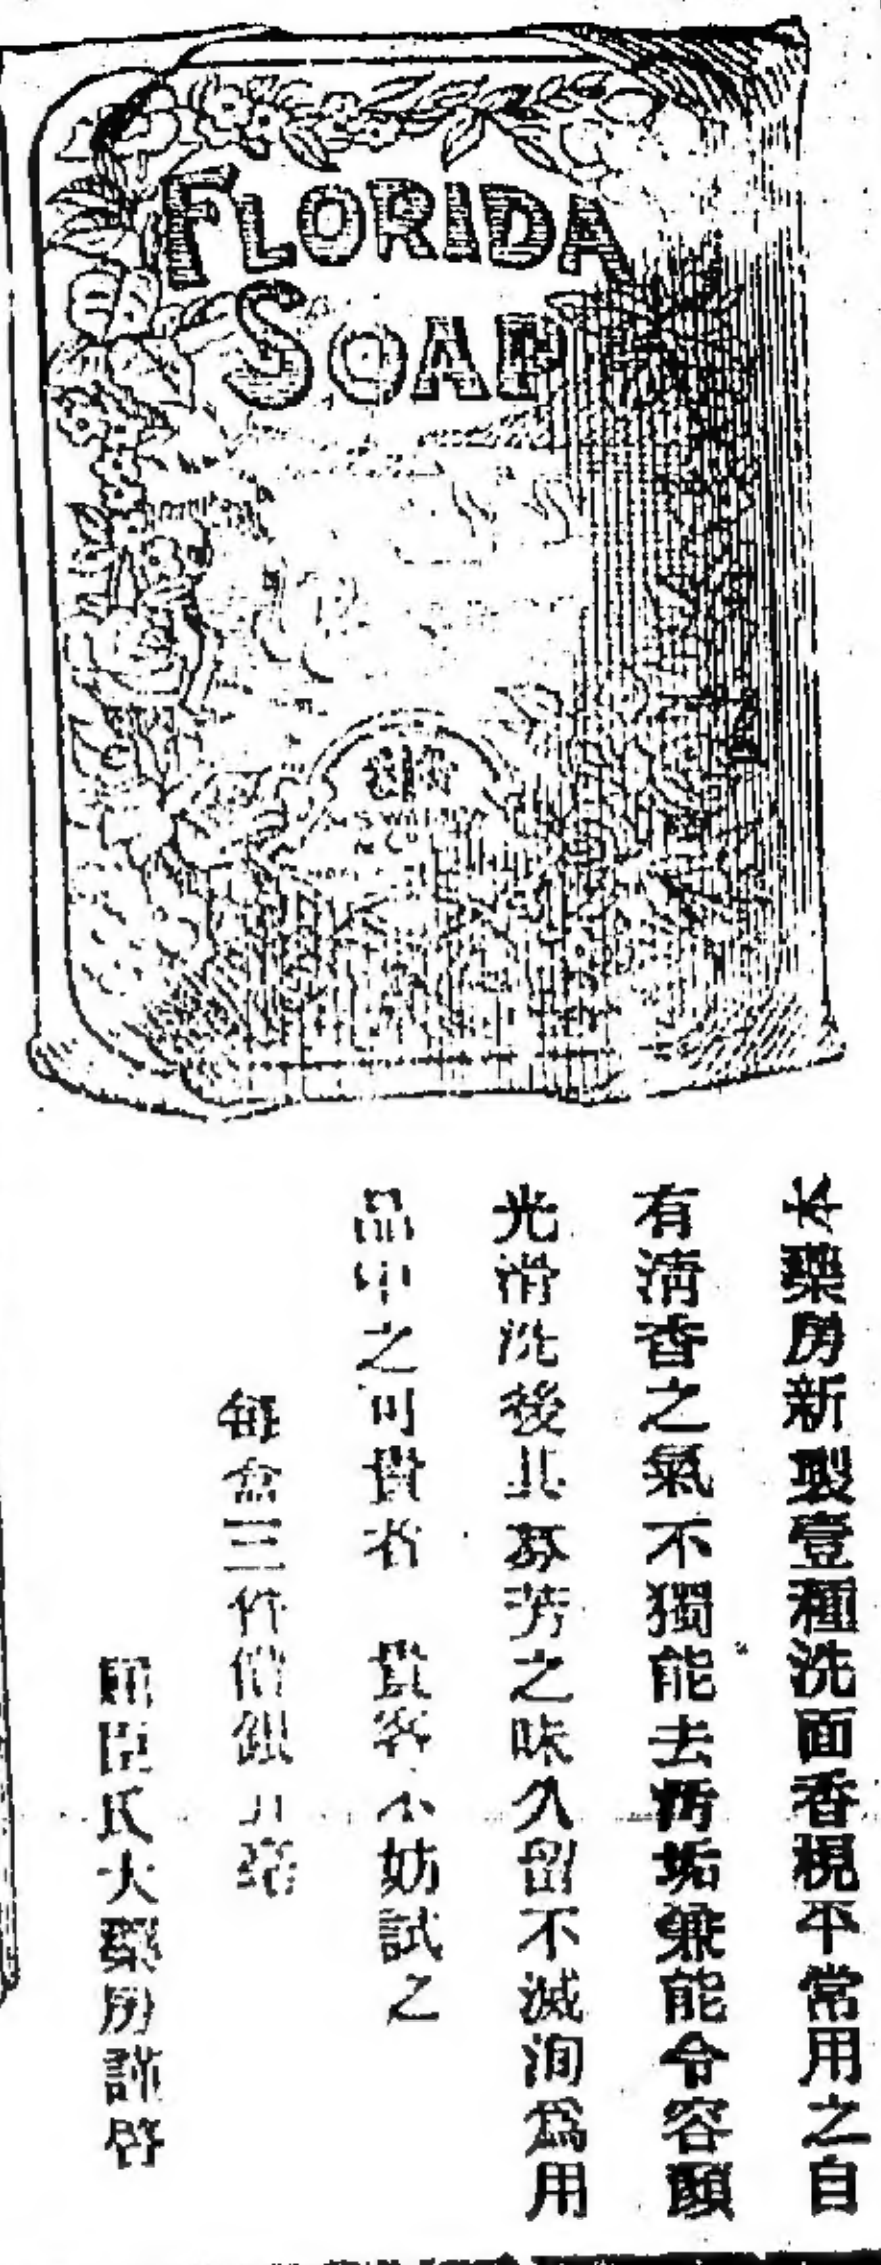 FLORIDA
SOAP
本藥房新製壹種洗面香梘平常用之自
有淸香之氣不獨能去污垢兼能令容顏
光滑洗後其芬芳之味久留不滅洵爲用
品中之可貴者　貴客不妨試之
每盒三件價銀
屈臣氏大藥房謹啓